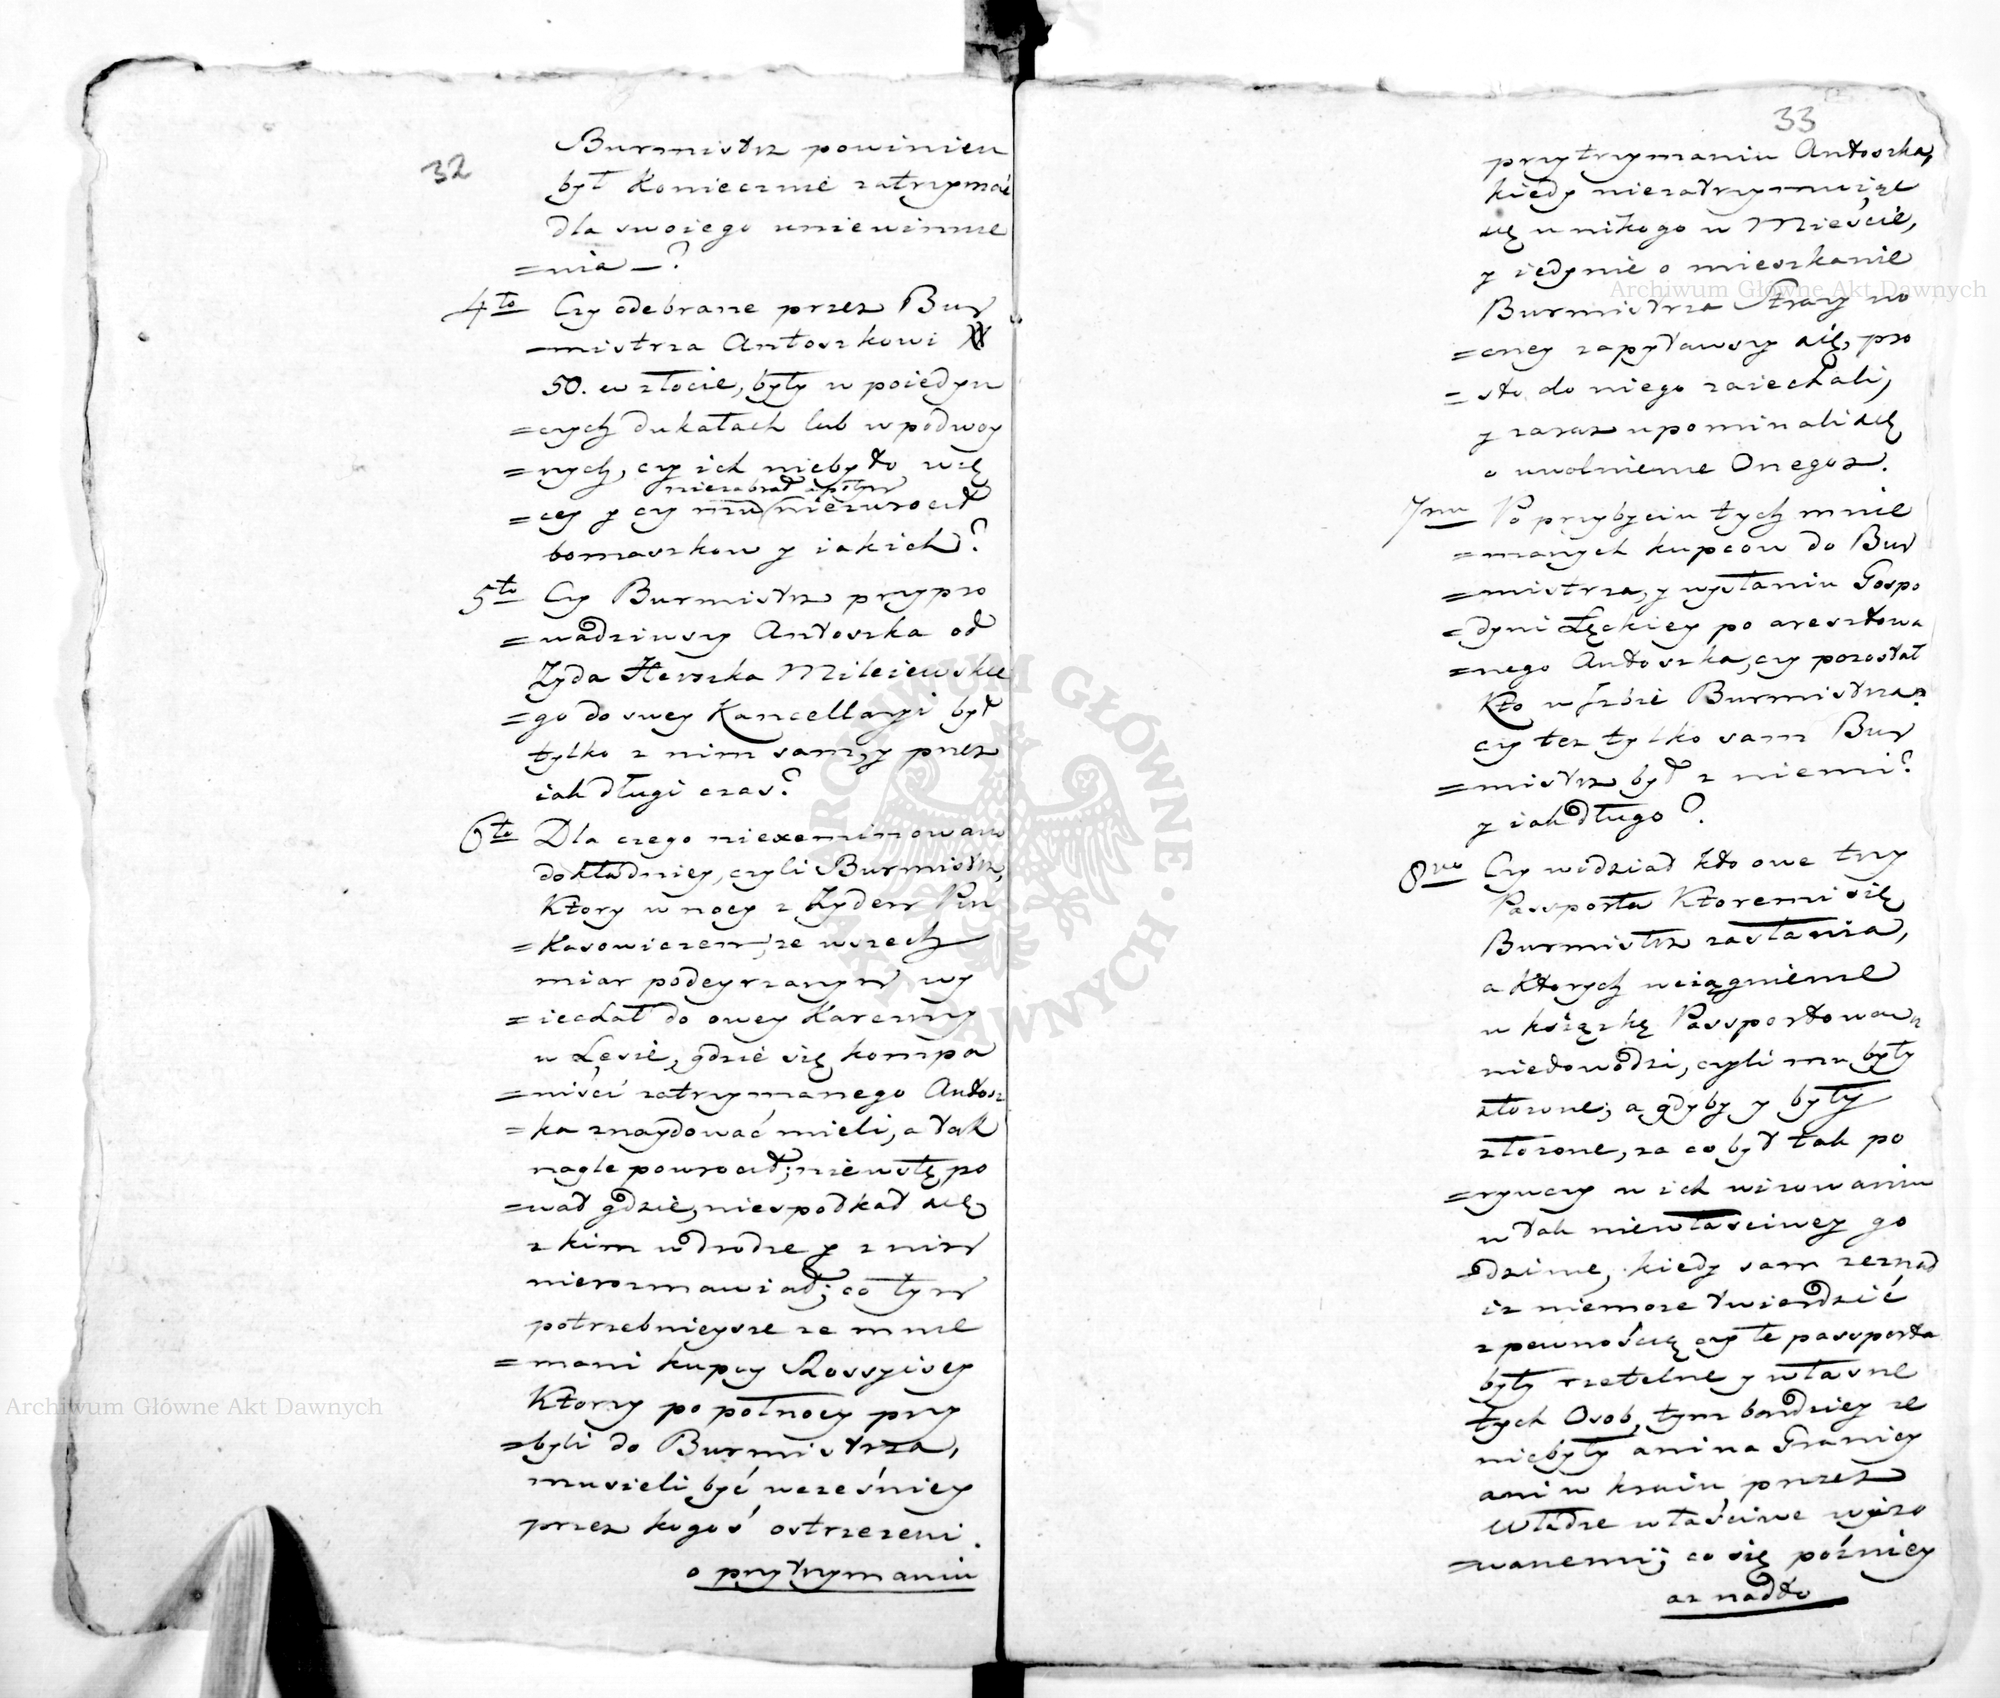 32
Burmistrz powinien
był koniecznie zatrzymać
dla swoiego uniewinnie
=nia —?
4to Czy odebrane przez Bur
=mistrza Antoszkowi #
50. w złocie, były w poiedyn
=czych dukatach lub w podwoy
=nych, czy ich niebyło wię
niezabrał
=cey y czy mu niezwrocił
bomaszkow y iakich?
5to Czy Burmistrz przypro
=wadziwszy Antoszka od
Żyda Herszka Mileiewskie
=go do swey Kancellaryi był
tylko z nim sam, y przez
iak długi czas?
6to Dla czego niexaminowano
dokładniey, czyli Burmistrz,
Ktory w nocy z Żydem Pin
=kasowiczem, ze wszech
miar podeyrzanym wy
=iechał do owey Karczmy
w Lesie, gdzie się kompa
=niści zatrzymanego Antosz
=ka znaydować mieli, a tak
nagle powrocił; niewstępo
=wał gdzie, niespotkał się
z kim w drodze y z nim
nierozmawiał; co tym
potrzebnieysze ze mnie
=mani kupcy Rossyiscy
Ktorzy po połnocy przy
=byli do Burmistrza,
musieli być wcześniey
przez kogoś ostrzezeni.
o przytrzymaniu
33
przytrzymaniu Antoszka,
kiedy niezatrzymuiąc
się u nikogo w Mieście,
y iedynie o mieszkanie
Burmistrza Straży no
=cney zapytawszy się, pro
=sto do niego zaiechali,
y zaraz upominali się
o uwolnienie Onegoz.
7mo Po przybyciu tych mnie
=manych kupcow do Bur
=mistrza, y wysłaniu Gospo
=dyni Łęckiey po aresztowa
=nego Antoszka, czy pozostał
Kto w Izbie Burmistrza?
czy tez tylko sam Bur
=mistrz był z niemi?
y iak długo?
8vo Czy widział kto owe trzy
Passporta Ktoremi się
Burmistrz zasłania,
a ktorych wciągnienie
w książkę Passportową
niedowodzi, czyli mu były
złozone; a gdyby y były
złozone, za co był tak po
=rywczy w ich wizowaniu
w tak niewłaściwey go
=dzinie, kiedy sam zeznał
iz niemoze twierdzić
z pewnością czy te passporta
były rzetelne y własne
tych Osob, tym bardziey ze
niebyły ani na Granicy
ani w kraiu przez
Władze właściwe wizo
=wanemi; co się pozniey
az nadto
Archiwum Główne Akt Dawnych
Archiwum Główne Akt Dawnych
ARCHIWUM GŁÓWNE AKT DAWNYCH